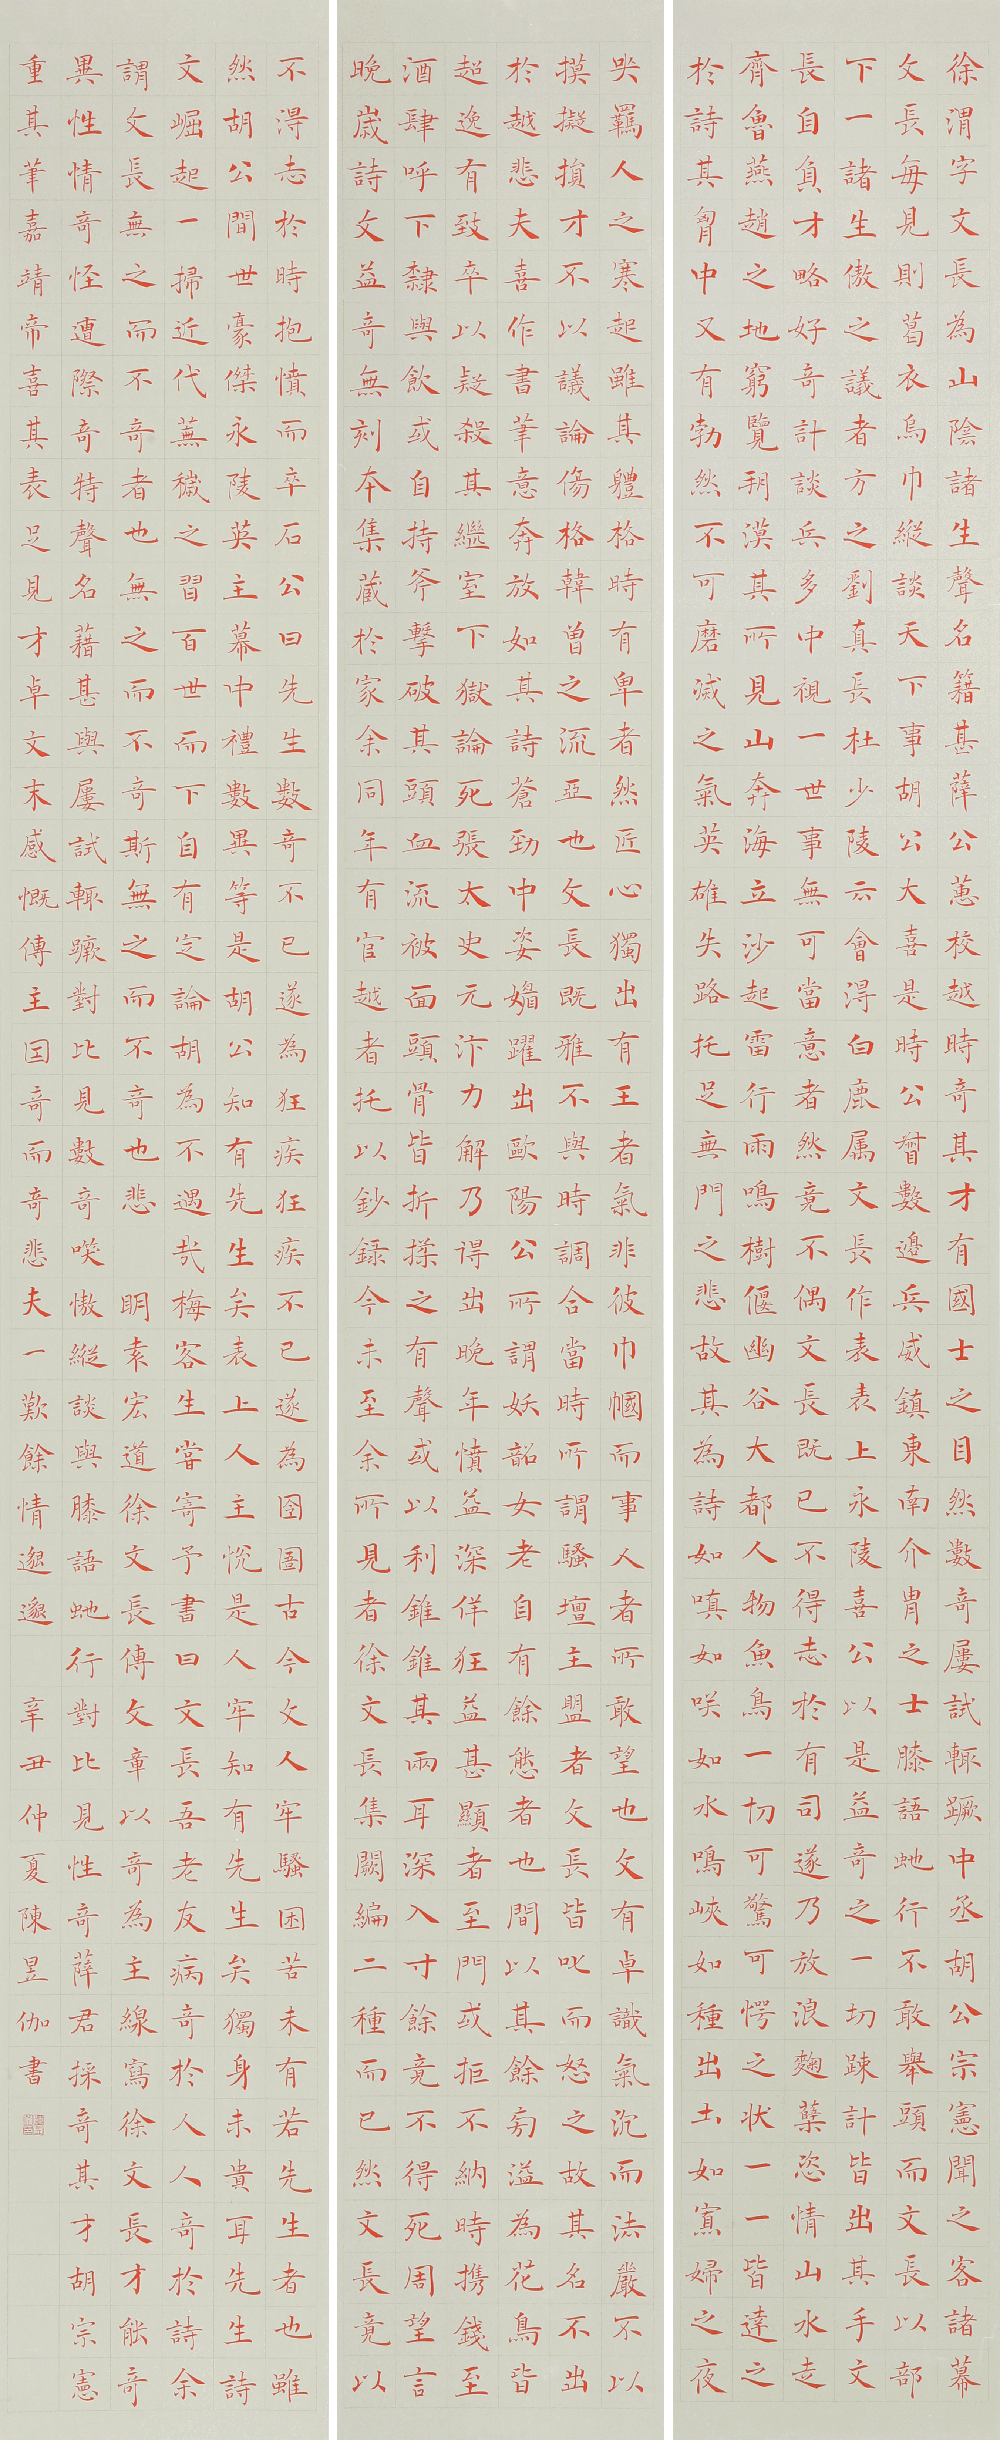 徐渭字文長為山陰諸生聲名籍甚薛公蕙校越時奇其才有國士之目然數奇屢試輒蹶中丞胡公宗憲聞之客諸幕
文長每見則葛衣烏巾縱談天下事胡公大喜是時公督數邊兵威鎮東南介胄之士膝語虵行不敢舉頭而文長以部
下一諸生傲之議者方之劉真長杜少陵云會淂白鹿属文長作表表上永陵喜公以是益奇之一切疎計皆出其手文
長自負才略好奇計談兵多中視一世事無可當意者然竟不偶文長既已不得志於有司遂乃放浪麴蘖恣情山水走
齊魯燕趙之地窮覽朔漠其所見山奔海立沙起雷行雨鳴樹偃幽谷大都人物魚鳥一切可驚可愕之狀一一皆達之
於詩其胷中又有勃然不可磨滅之氣英雄失路托足無門之悲故其為詩如嗔如咲如水鳴峽如種出土如寡婦之夜
哭羈人之寒起雖其體格時有卑者然匠心獨出有王者氣非彼巾幗而事人者所敢望也文有卓識氣沉而法嚴不以
摸擬損才不以議論傷格韓曾之流亞也文長既雅不與時調合當時所謂騷壇主盟者文長皆叱而怒之故其名不出
於越悲夫喜作書筆意奔放如其詩蒼勁中姿媚躍出歐陽公所謂妖韶女老自有餘態者也間以其餘旁溢為花鳥皆
超逸有致卒以疑殺其繼室下獄論死張太史元汴力解乃得出晚年憤益深佯狂益甚顯者至門或拒不納時携錢至
酒肆呼下隸與飲或自持斧擊破其頭血流被面頭骨皆折揉之有聲或以利錐錐其兩耳深入寸餘竟不得死周望言
晚歲詩文益奇無刻本集藏於家余同年有官越者托以鈔錄今未至余所見者徐文長集闕編二種而已然文長竟以
不淂志於時抱憤而卒石公曰先生數奇不已遂為狂疾狂疾不已遂為囹圄古今文人牢騷困苦未有若先生者也雖
然胡公間世豪傑永陵英主幕中禮數異等是胡公知有先生矣表上人主悅是人牢知有先生矣獨身未貴耳先生詩
文崛起一掃近代蕪穢之習百世而下自有定論胡為不遇哉梅客生嘗寄予書曰文長吾老友病奇於人人奇於詩余
謂文長無之而不奇者也無之而不奇斯無之而不奇也悲 明袁宏道徐文長傳文章以奇為主線寫徐文長才能奇
異性情奇怪遭際奇特聲名藉甚與屢試輒蹶對比見數奇咲慠縱談與膝語虵行對比見性奇薛君採奇其才胡宗憲
重其筆嘉靖帝喜其表足見才卓文末感慨傳主因奇而奇悲夫一歎餘情邈邈 辛丑仲夏陳昱伽書